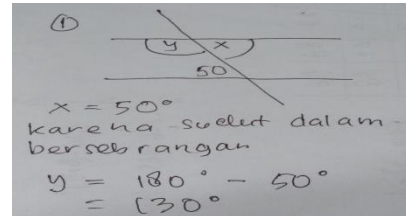 ①
y x
50
x = 50°
karena sudut dalam
bersebrangan
y = 180° - 50°
= 130°